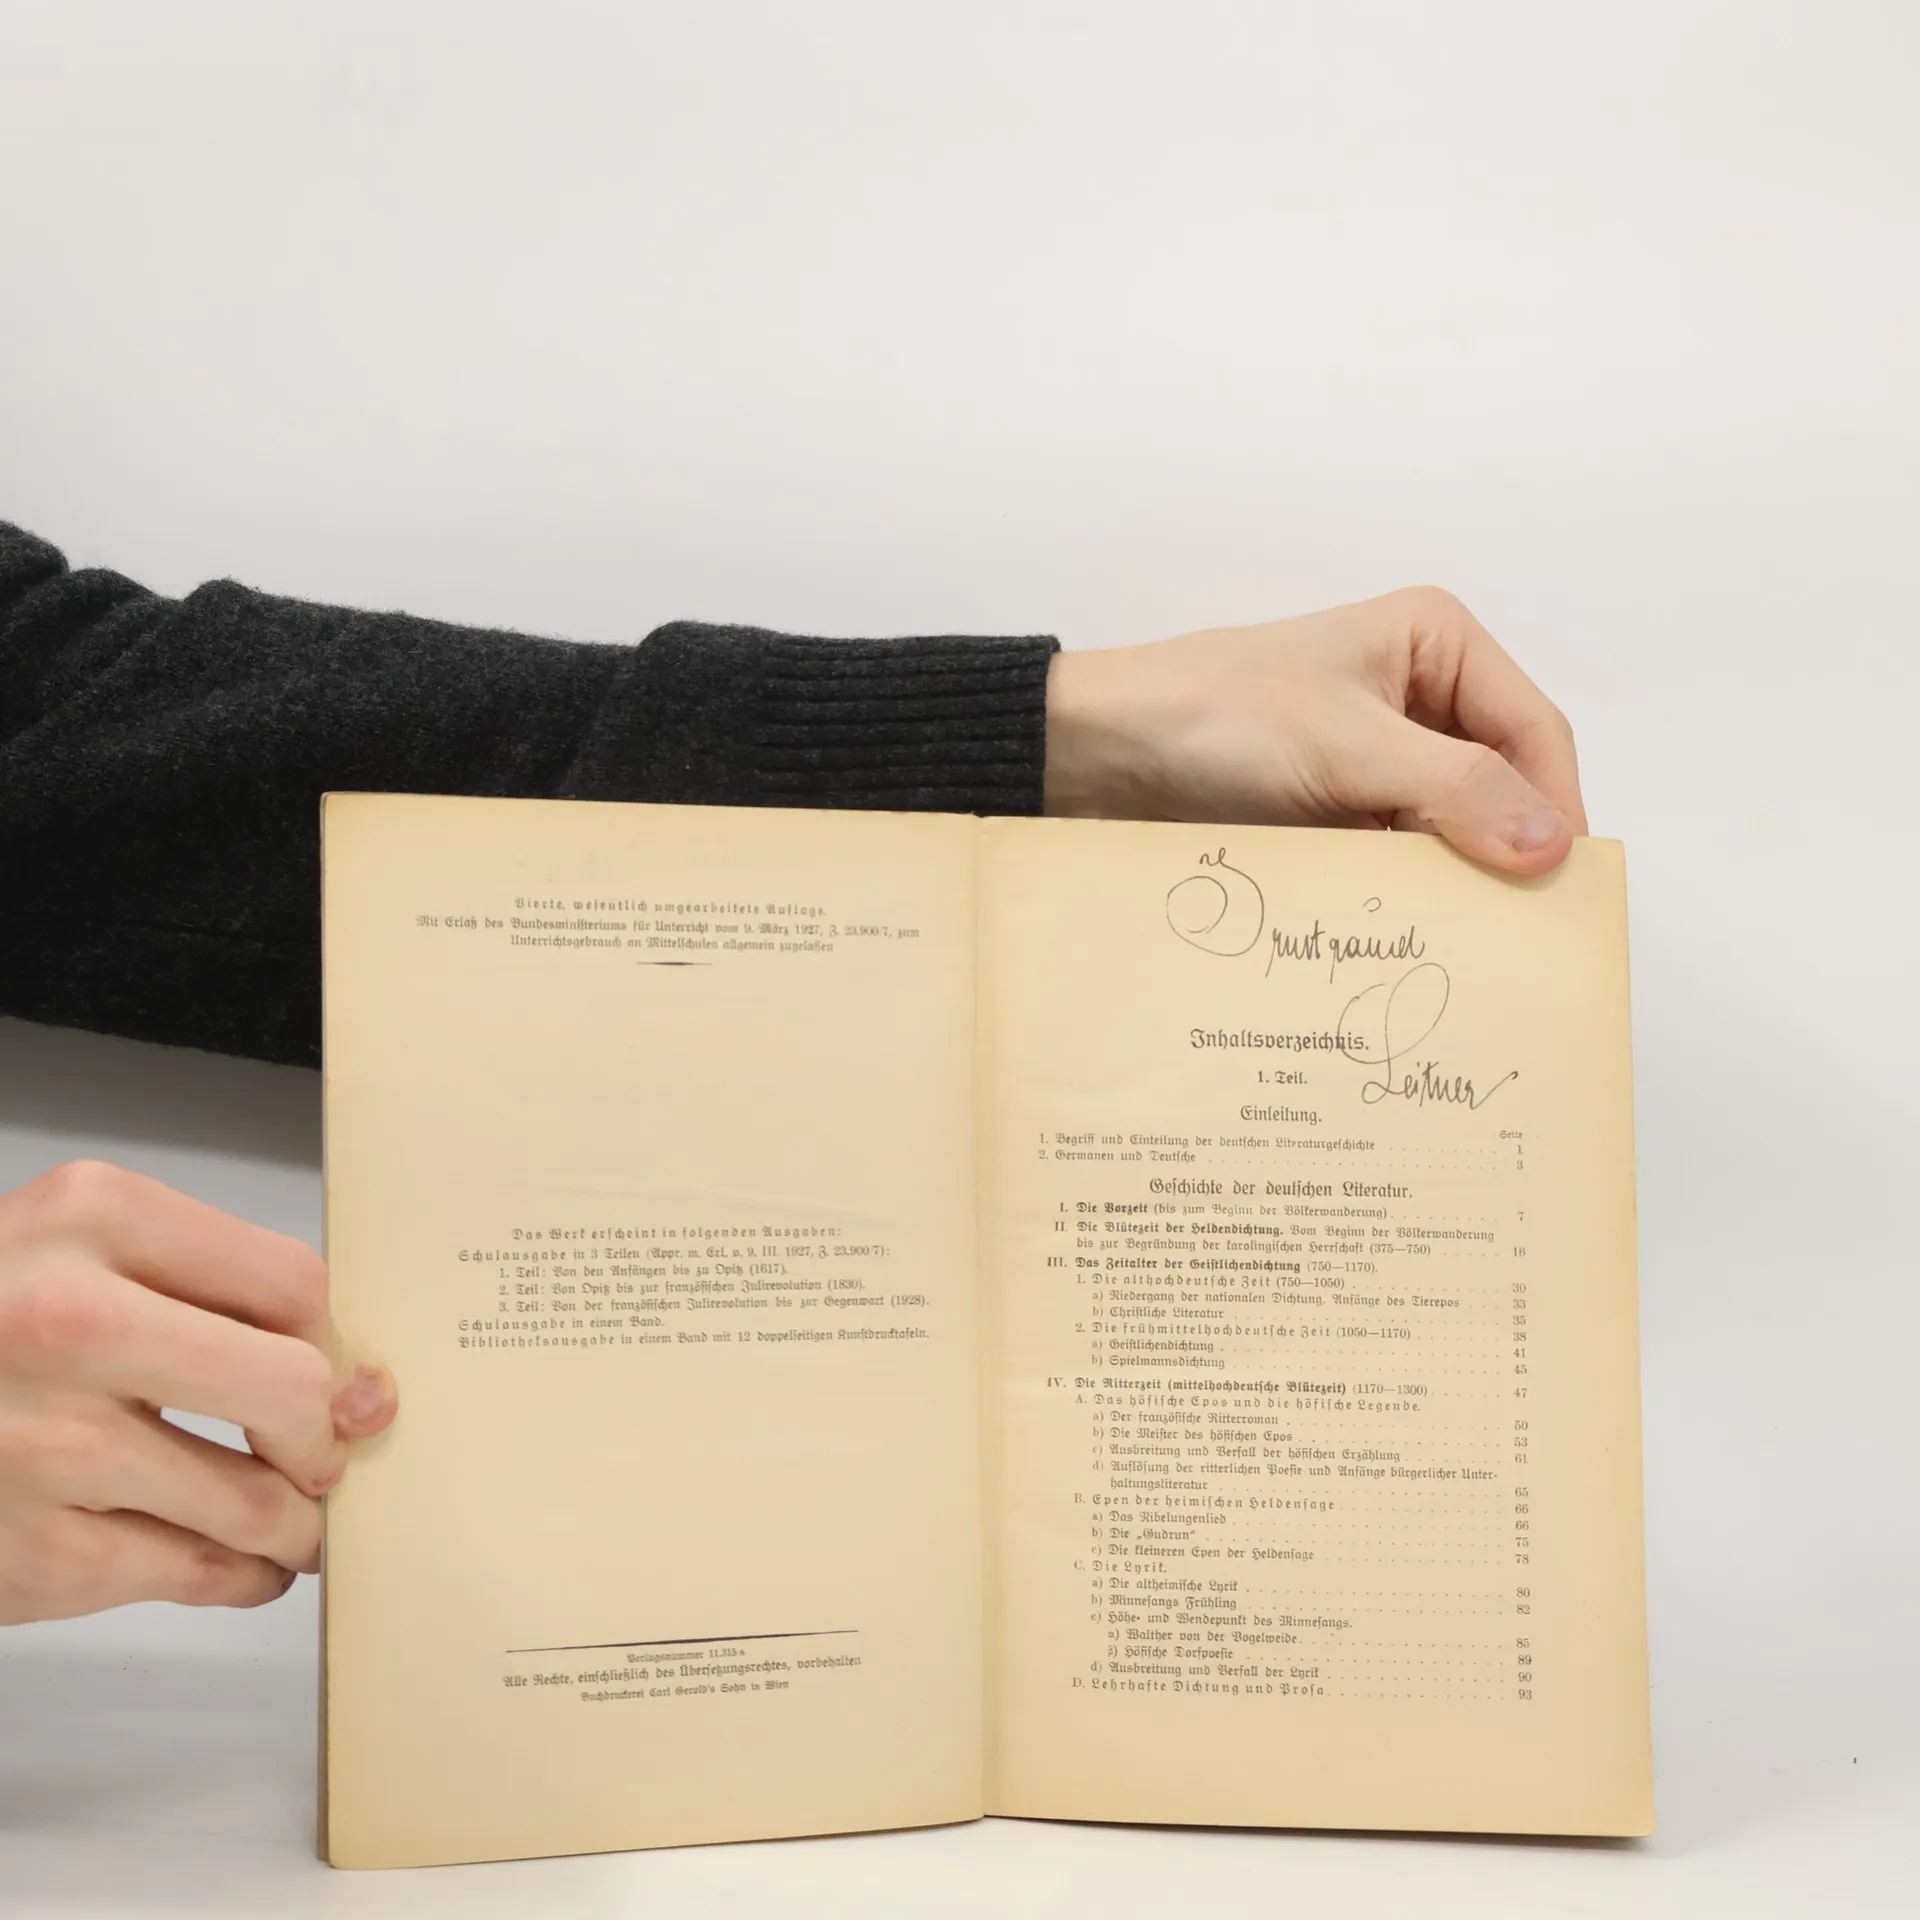 Vierte, wesentlich umgearbeitete Auflage.
Mit Erlaß des Bundesministeriums für Unterricht vom 9. März 1927, Z. 23.900/7, zum
Unterrichtsgebrauch an Mittelschulen allgemein zugelassen
Das Werk erscheint in folgenden Ausgaben:
Schulausgabe in 3 Teilen (Appr. m. Erl. v. 9. III. 1927, Z. 23.900/7):
1. Teil: Von den Anfängen bis zu Opitz (1617).
2. Teil: Von Opitz bis zur französischen Julirevolution (1830).
3. Teil: Von der französischen Julirevolution bis zur Gegenwart (1928).
Schulausgabe in einem Band.
Bibliotheksausgabe in einem Band mit 12 doppelseitigen Kunstdrucktafeln.
Verlagsnummer 11.315 a
Alle Rechte, einschließlich des Übersetzungsrechtes, vorbehalten
Buchdruckerei Carl Gerold's Sohn in Wien
Leitner
Inhaltsverzeichnis.
1. Teil.
Einleitung.
Seite
1. Begriff und Einteilung der deutschen Literaturgeschichte . . . . . . . . . 1
2. Germanen und Deutsche . . . . . . . . . 3
Geschichte der deutschen Literatur.
I. Die Vorzeit (bis zum Beginn der Völkerwanderung) . . . . . . . . . 7
II. Die Blütezeit der Heldendichtung. Vom Beginn der Völkerwanderung
bis zur Begründung der karolingischen Herrschaft (375—750) . . . . . 16
III. Das Zeitalter der Geistlichendichtung (750—1170).
1. Die althochdeutsche Zeit (750—1050) . . . . . . . . . 30
a) Niedergang der nationalen Dichtung. Anfänge des Tierepos . . . 33
b) Christliche Literatur . . . . . . . . . 35
2. Die frühmittelhochdeutsche Zeit (1050—1170) . . . . . . . 38
a) Geistlichendichtung . . . . . . . . . 41
b) Spielmannsdichtung . . . . . . . . . 45
IV. Die Ritterzeit (mittelhochdeutsche Blütezeit) (1170—1300) . . . . . 47
A. Das höfische Epos und die höfische Legende.
a) Der französische Ritterroman . . . . . . . . . 50
b) Die Meister des höfischen Epos . . . . . . . . . 53
c) Ausbreitung und Verfall der höfischen Erzählung . . . . . . . 61
d) Auflösung der ritterlichen Poesie und Anfänge bürgerlicher Unter-
haltungsliteratur . . . . . . . . . 65
B. Epen der heimischen Heldensage . . . . . . . . . 66
a) Das Nibelungenlied . . . . . . . . . 66
b) Die „Gudrun“ . . . . . . . . . 75
c) Die kleineren Epen der Heldensage . . . . . . . . . 78
C. Die Lyrik.
a) Die altheimische Lyrik . . . . . . . . . 80
b) Minnesangs Frühling . . . . . . . . . 82
c) Höhe- und Wendepunkt des Minnesangs.
α) Walther von der Vogelweide . . . . . . . . . 85
β) Höfische Dorfpoesie . . . . . . . . . 89
d) Ausbreitung und Verfall der Lyrik . . . . . . . . . 90
D. Lehrhafte Dichtung und Prosa . . . . . . . . . 93